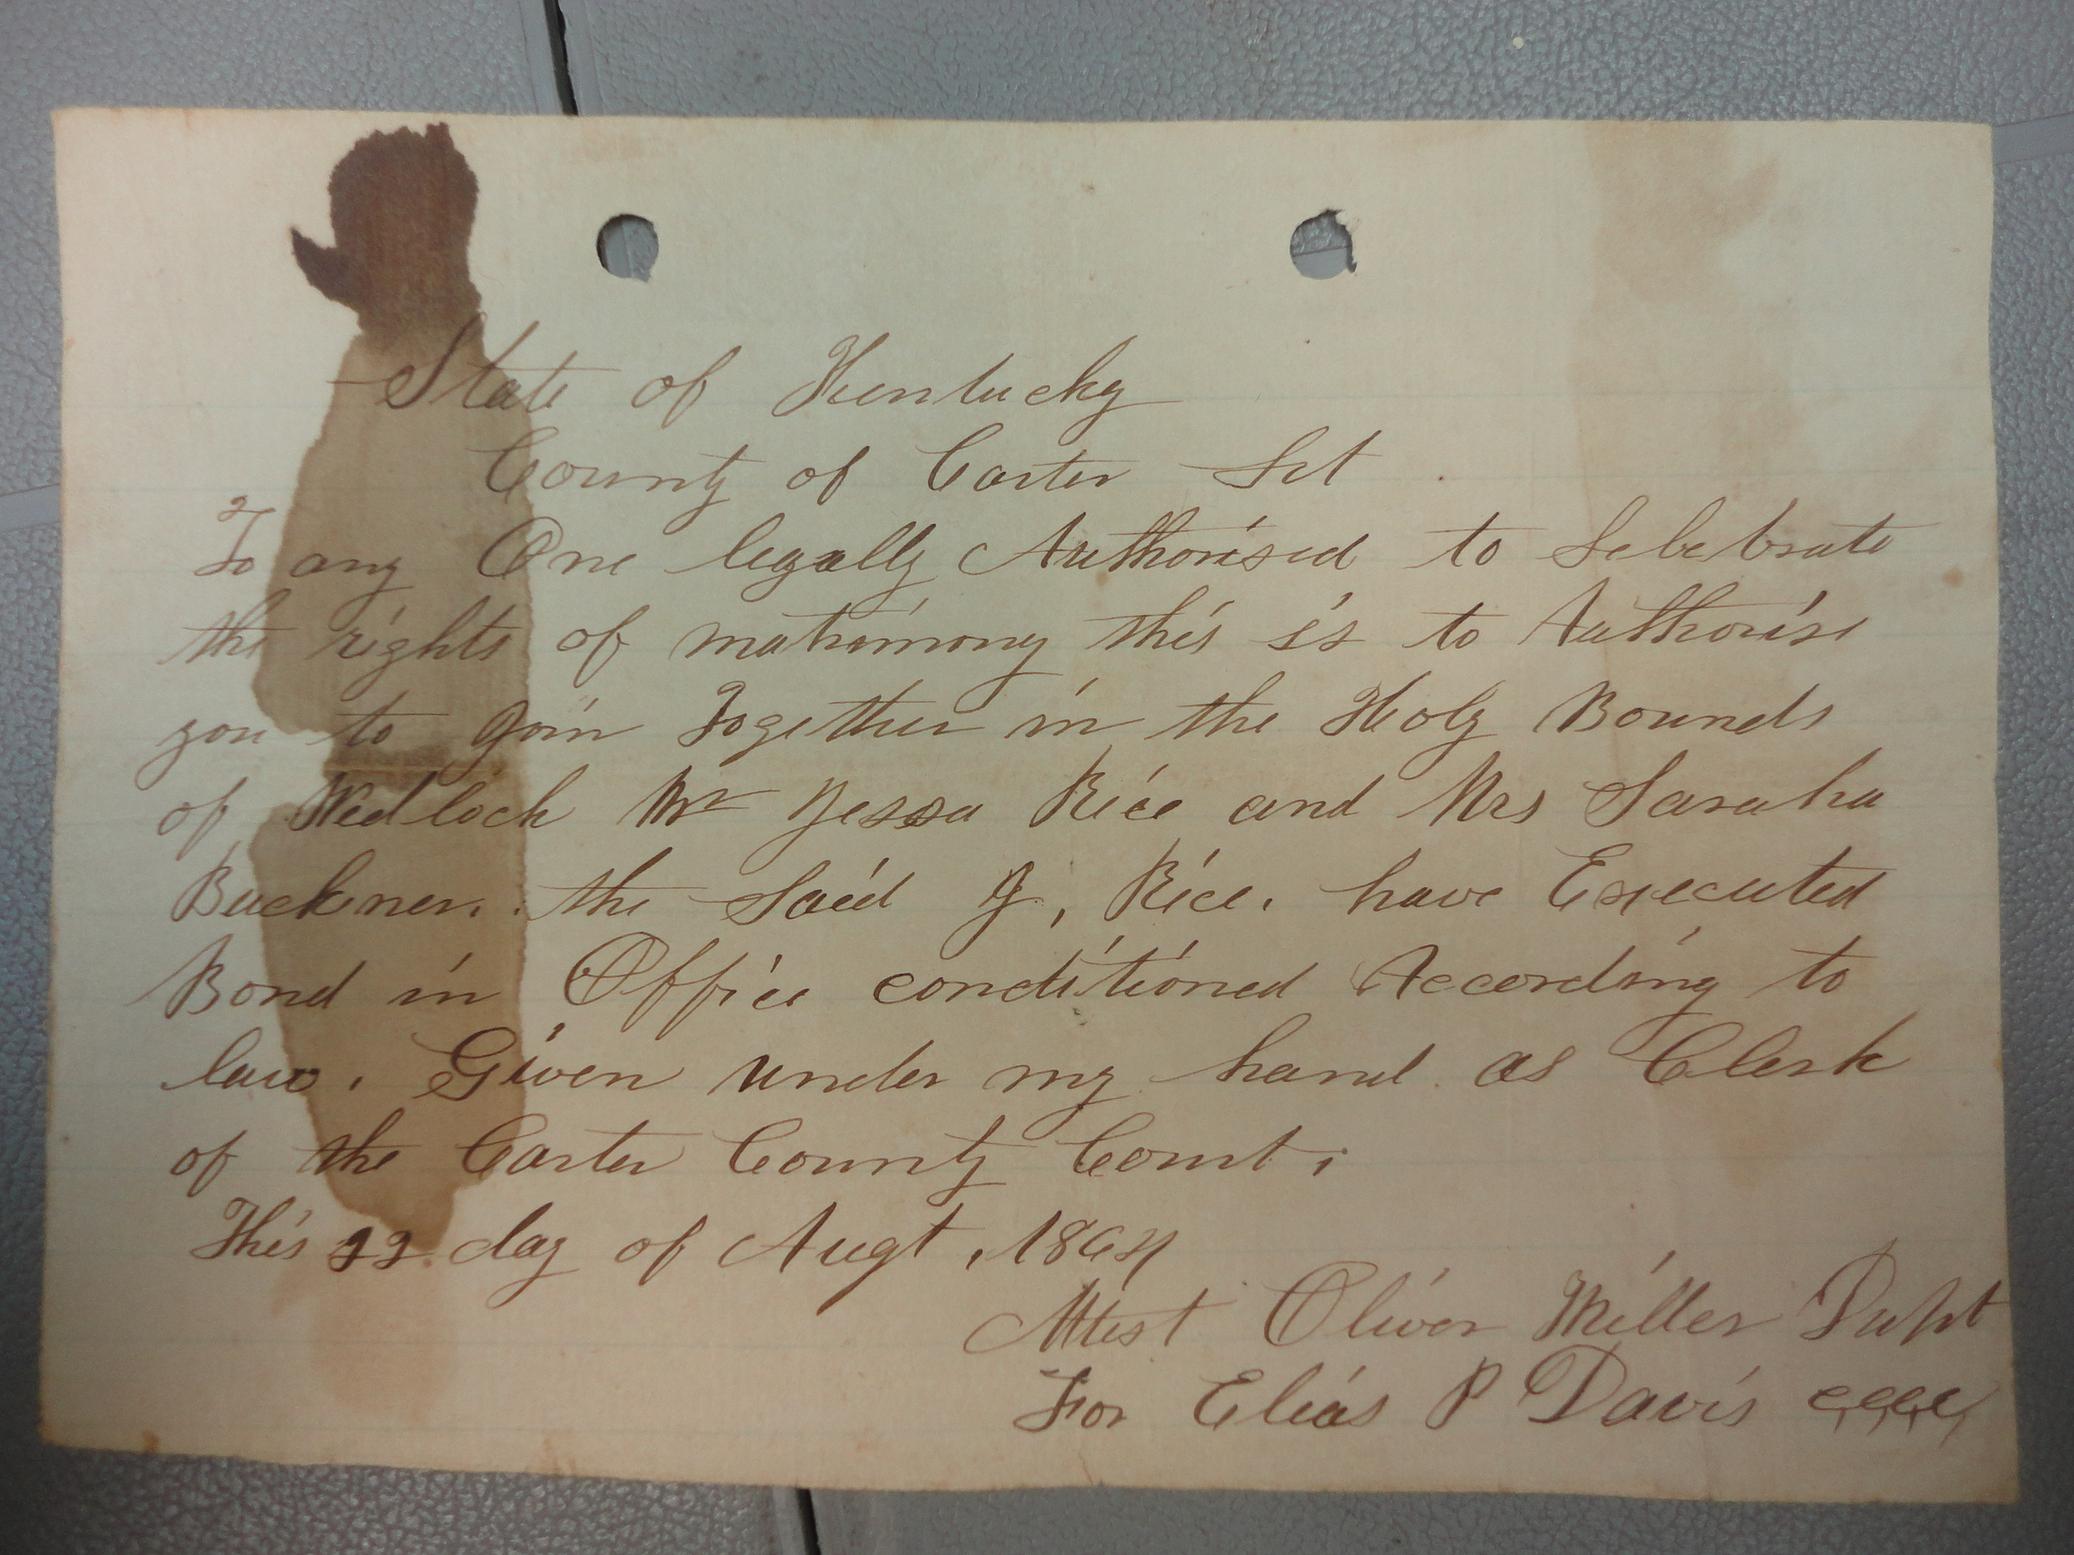 State of Kentucky
County of Carter Sct
To any One legally Authorised to Selebrate
the rights of matrimony this is to Authorise
you to join Together in the Holy Bounds
of Wedlock Mr Jessa Rice and Mrs Saraha
Buckner. the Said J, Rice. have Executed
Bond in Office conditioned According to
law. Given under my hand as Clerk
of the Carter County Court.
This 22 day of Augt, 1864
Attest Oliver Miller Dupt
For Elias P Davis CCCC